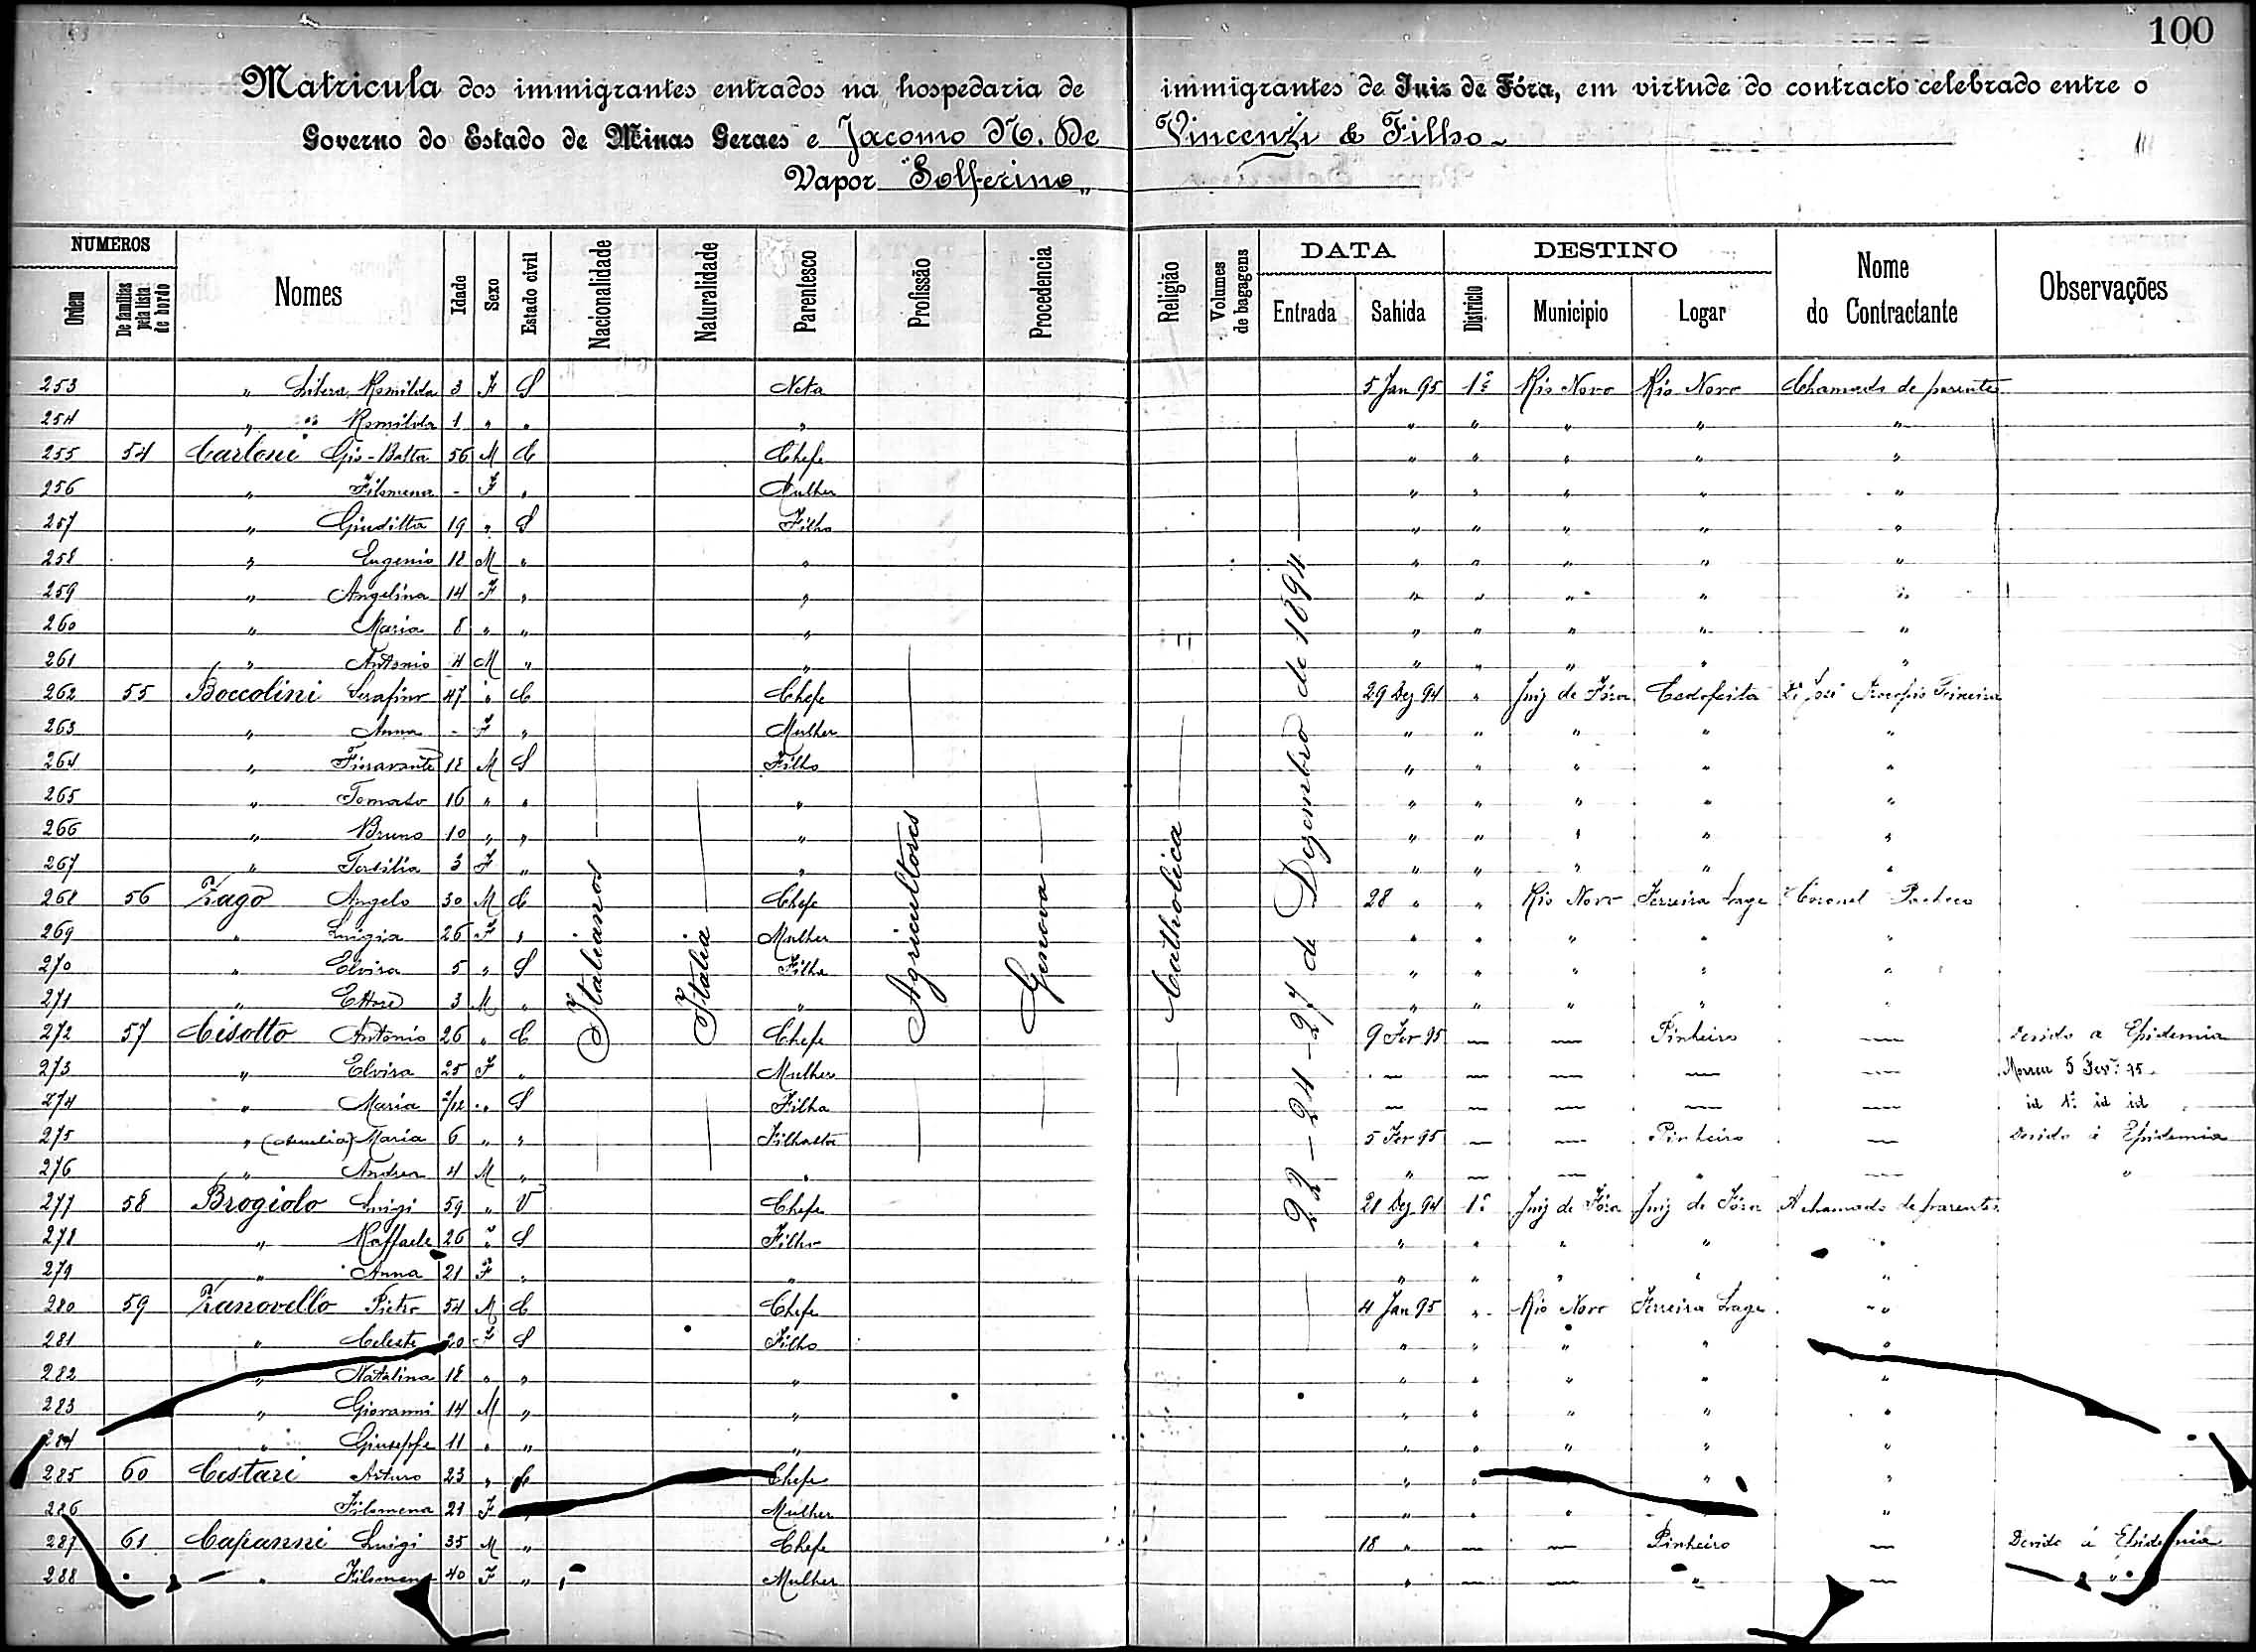 100
Matricula dos immigrantes entrados na hospedaria de immigrantes de Juiz de Fóra, em virtude do contracto celebrado entre o
Governo do Estado de Minas Geraes e Jacomo N. De Vincenzi & Filho
Vapor "Solferino"
NUMEROS DATA DESTINO
Ordem De familias pela lista de bordo Nomes Idade Sexo Estado civil Nacionalidade Naturalidade Parentesco Profissão Procedencia Religião Volumes de bagagens Entrada Sahida Districto Municipio Logar Nome do Contractante Observações
Italianos
Italia
Agricultores
Genova
Catholica
22 - 24 - 27 de Dezembro de 1894
253 " Romilda 3 F S Neta 5 Jan 95 1º Rio Novo Rio Novo Chamado de parentes
254 " " Romilda 1 " " " " " " " "
255 54 Carloni Gio-Batta 56 M C Chefe " " " " "
256 " Filomena - F " Mulher " " " " "
257 " Giuditta 19 " S Filha " " " " "
258 " Eugenio 18 M " " " " " " "
259 " Angelina 14 F " " " " " " "
260 " Maria 8 " " " " " " " "
261 " Antonio 4 M " " " " " " "
262 55 Boccolini Serafino 47 " C Chefe 29 Dez 94 " Juiz de Fóra Cedofeita José Teixeira
263 " Anna - F " Mulher " " " " "
264 " Fioravante 18 M S Filho " " " " "
265 " 16 " " " " " " " "
266 " Bruno 10 " " " " " " " "
267 " Tersilia 3 F " " " " " " "
268 56 Zago Angelo 30 M C Chefe 28 " " Rio Novo Ferreira Lage Coronel Pacheco
269 " Luigia 26 F " Mulher " " " " "
270 " Elvira 5 " S Filha " " " " "
271 " Ettore 3 M " " " " " " "
272 57 Cisotto Antonio 26 " C Chefe 9 Fev 95 — — Pinheiro — Devido a Epidemia
273 " Elvira 25 F " Mulher — — — — — Morreu 5 Fevº 95
274 " Maria /12 " S Filha — — — — — id 1º id id
275 " (Amelia) Maria 6 " " Filhastra 5 Fev 95 — — Pinheiro — Devido á Epidemia
276 " Andrea 4 M " " " — — " — "
277 58 Brogiolo Luigi 59 " V Chefe 21 Dez 94 1º Juiz de Fóra Juiz de Fóra A chamado de parentes
278 " Raffaele 26 " S Filho " " " " "
279 " Anna 21 F " " " " " " "
280 59 Zanovello Pietro 54 M C Chefe 4 Jan 95 " Rio Novo Ferreira Lage "
281 " Celeste 20 F S Filho " " " " "
282 " Natalina 18 " " " " " " " "
283 " Giovanni 14 M " " " " " " "
284 " Giuseppe 11 " " " " " " " "
285 60 Cestari Arturo 23 " C Chefe " " " "
286 Filomena 21 F " Mulher " " " "
287 61 Capanni Luigi 35 M " Chefe 18 " — — Pinheiro — Devido á Epidemia
288 " Filomena 40 F " Mulher " — — " — "